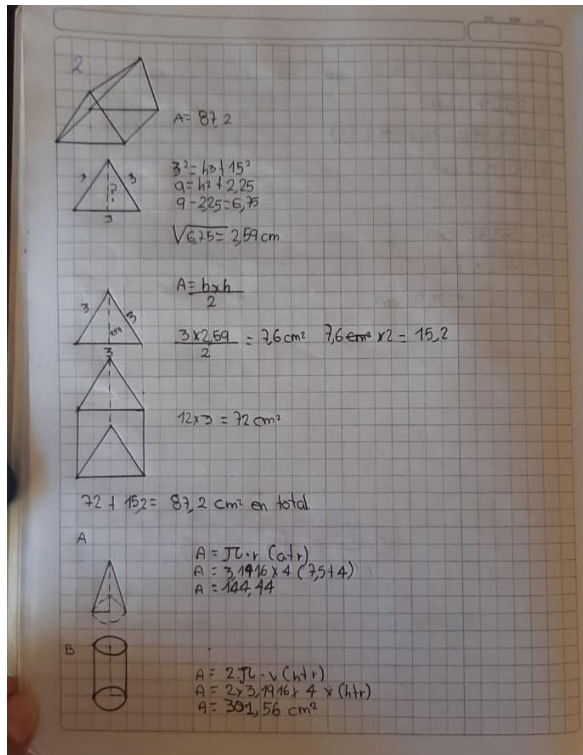 2
A= 87,2
3²=h³+15²
3 3 ?
9=h²+2,25
9-2,25=6,75
3
√6,75=2,59cm
A=bxh
2
3 3 2,59
3x2,59 = 7,6cm² 7,6cm² x2= 15,2
2
3
12x3 =72cm²
72+15,2= 87,2 cm² en total
A
A=π·r (a+r)
A=3,1416x4(7,5+4)
A=144,44
B
A= 2·π·r(h+r)
A=2x3,1416x 4 x(h+r)
A= 301,56 cm²